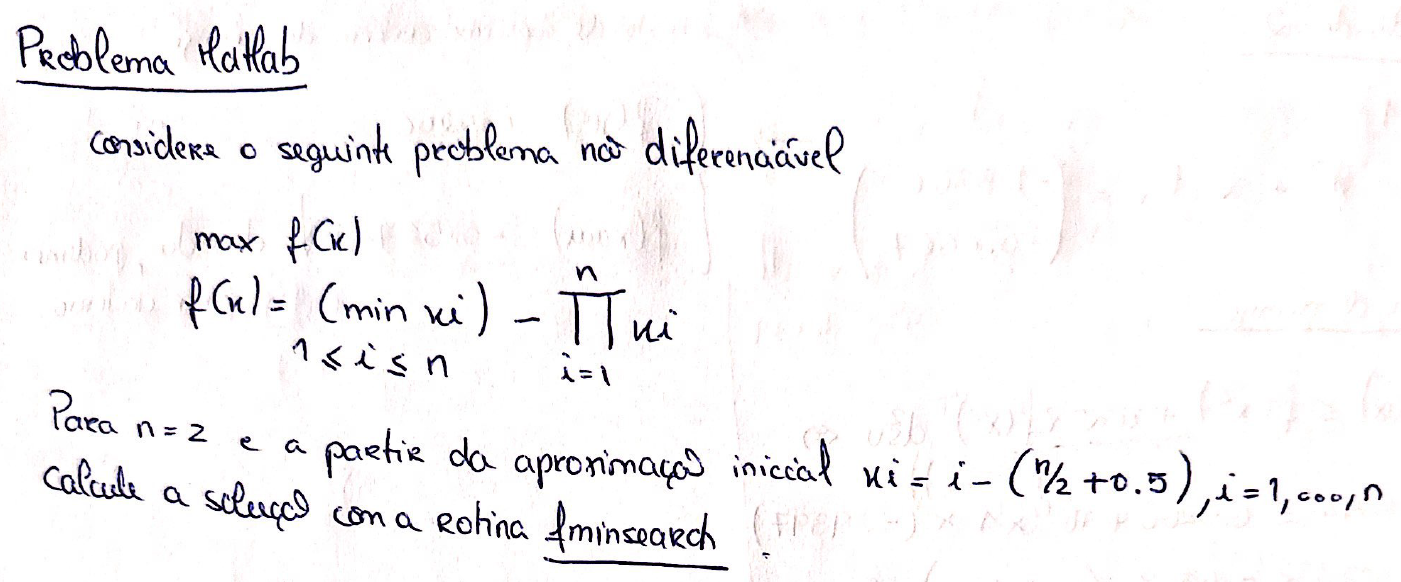 Problema Matlab
considere o seguinte problema não diferenciável
max f(x)
f(x) = (min xi) - ∏ xi
n
1 ≤ i ≤ n
i=1
Para n=2 e a partir da aproximação inicial xi = i - (n/2 + 0.5), i=1,...,n
calcule a solução com a rotina fminsearch.